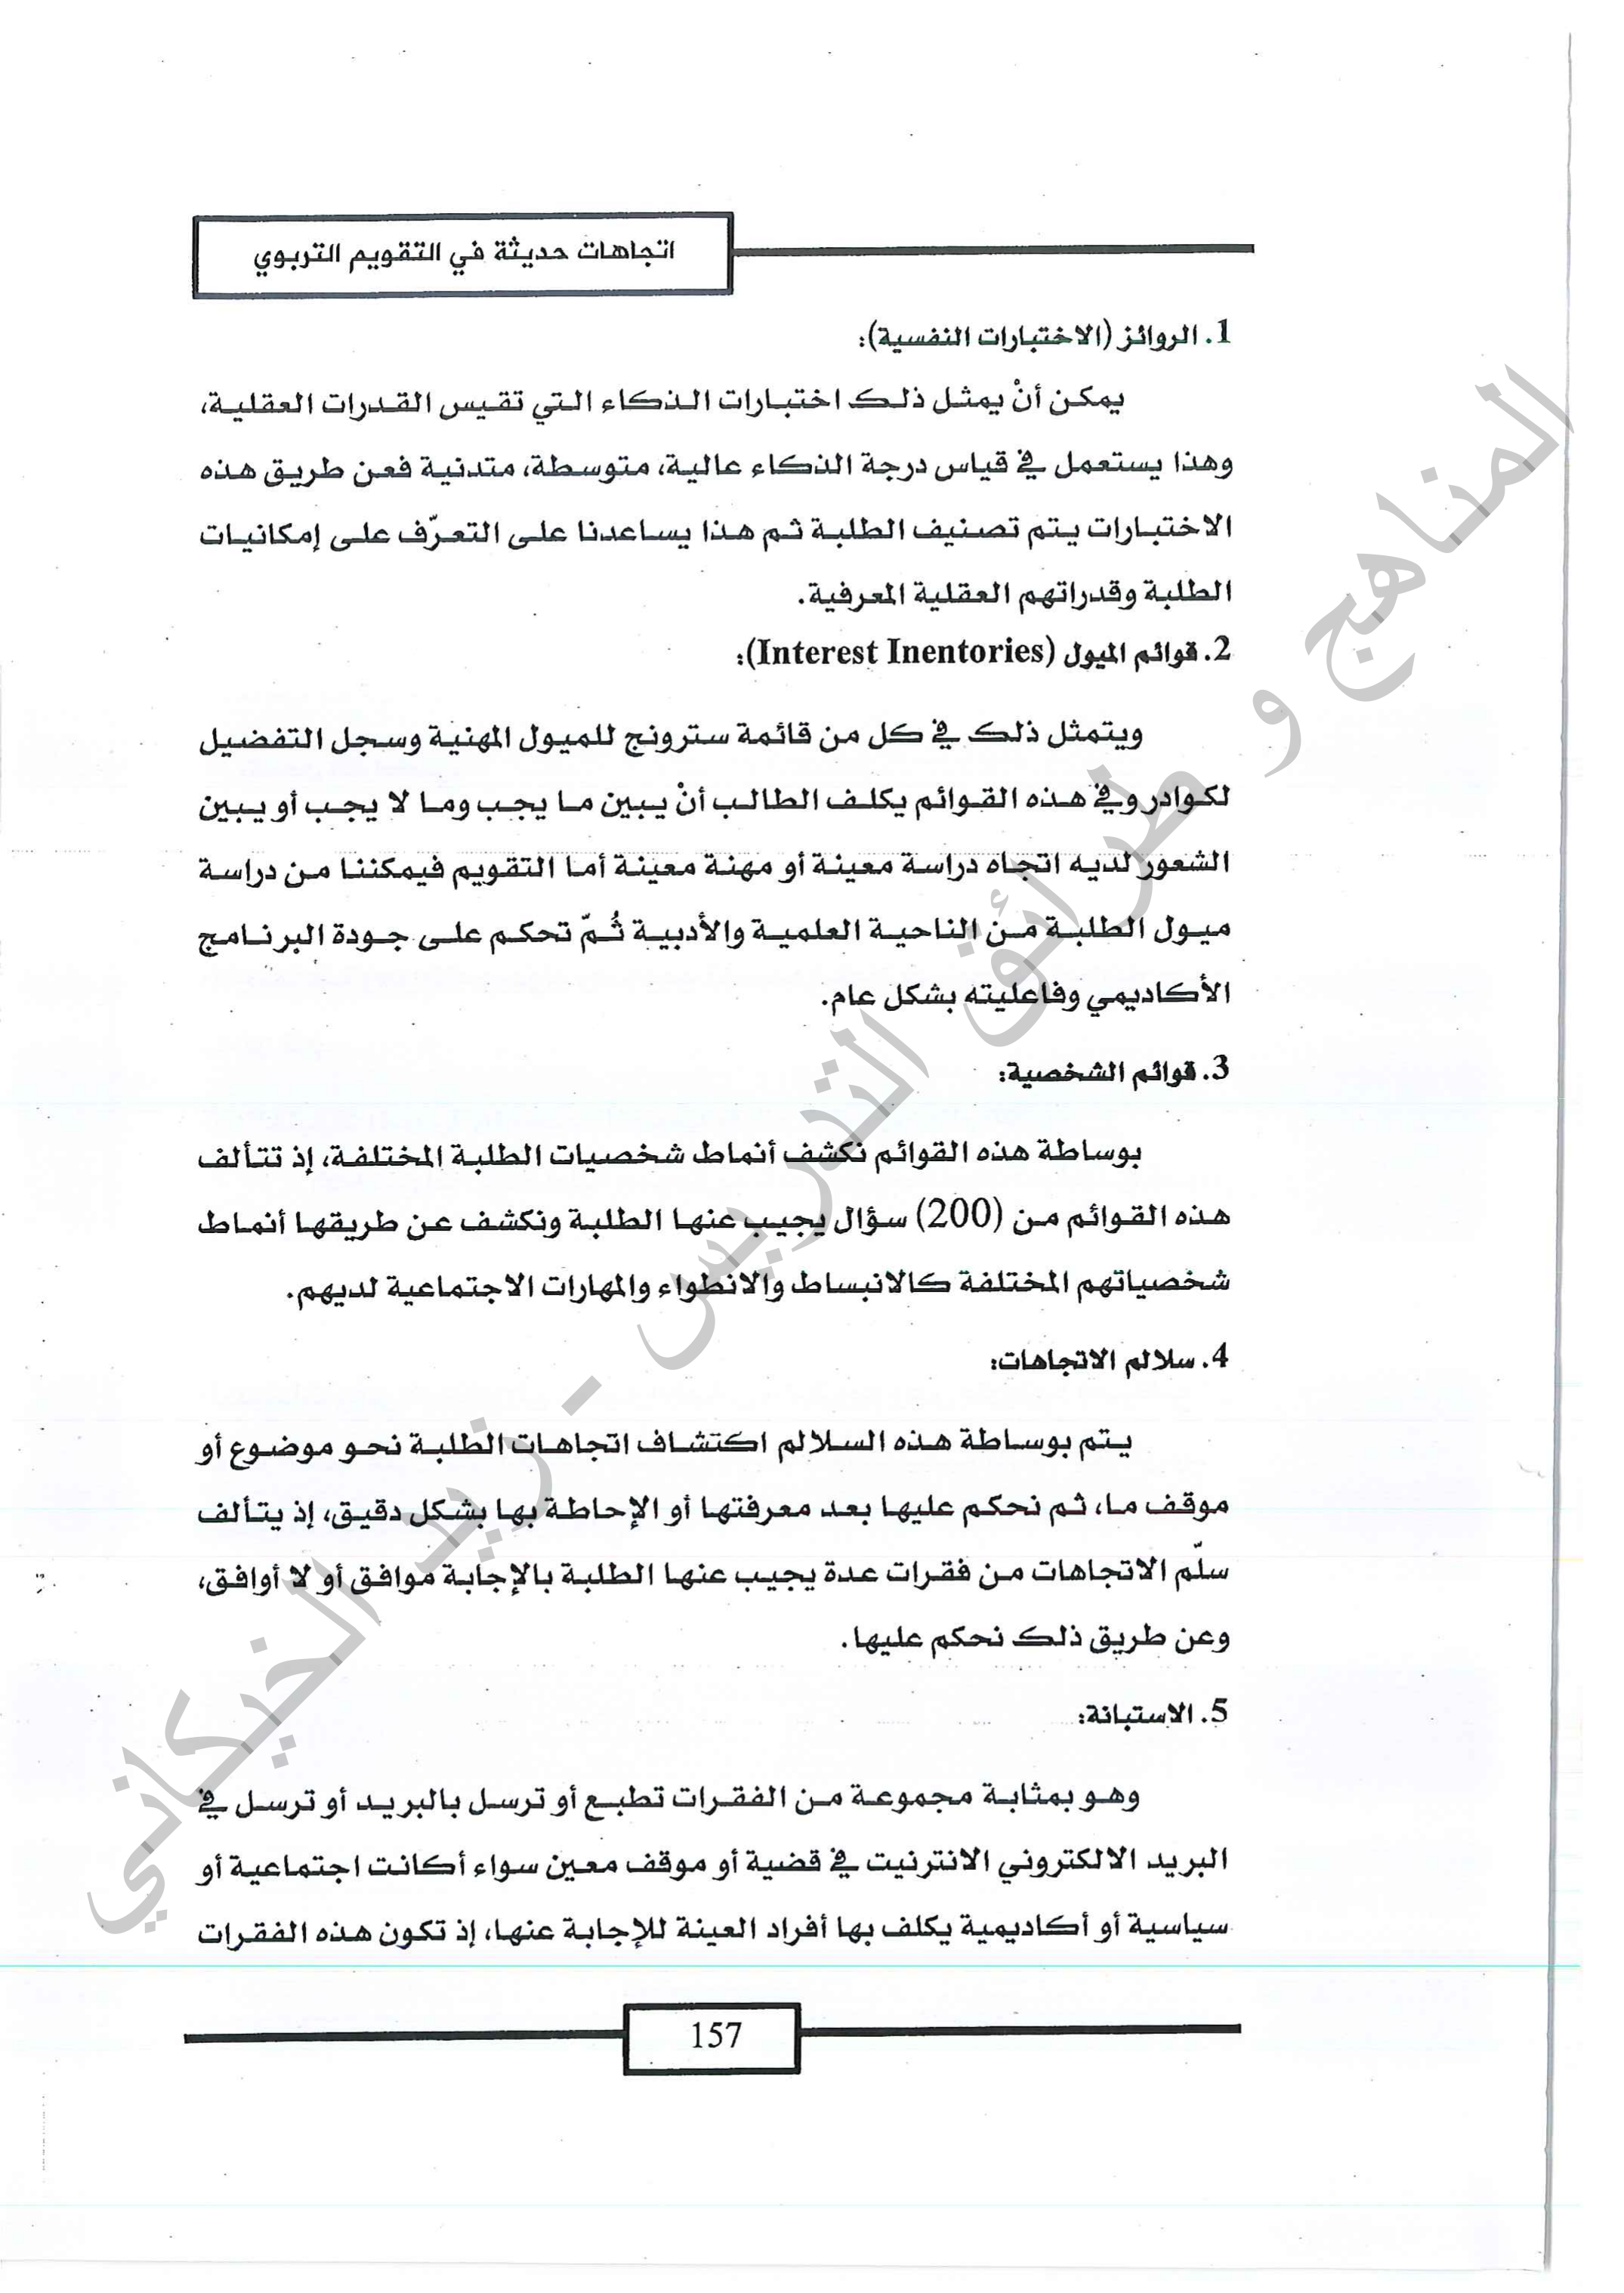 اتجاهات حديثة في التقويم التربوي
1. الروائز (الاختبارات النفسية):
يمكن أنْ يمثل ذلك اختبارات الذكاء التي تقيس القدرات العقلية،
وهذا يستعمل في قياس درجة الذكاء عالية، متوسطة، متدنية فعن طريق هذه
الاختبارات يتم تصنيف الطلبة ثم هذا يساعدنا على التعرّف على إمكانيات
الطلبة وقدراتهم العقلية المعرفية.
2. قوائم الميول (Interest Inentories):
ويتمثل ذلك في كل من قائمة سترونج للميول المهنية وسجل التفضيل
لكوادر وفي هذه القوائم يكلف الطالب أنْ يبين ما يجب وما لا يجب أو يبين
الشعور لديه اتجاه دراسة معينة أو مهنة معينة أما التقويم فيمكننا من دراسة
ميول الطلبة من الناحية العلمية والأدبية ثُمّ تحكم على جودة البرنامج
الأكاديمي وفاعليته بشكل عام.
3. قوائم الشخصية:
بوساطة هذه القوائم نكشف أنماط شخصيات الطلبة المختلفة، إذ تتألف
هذه القوائم من (200) سؤال يجيب عنها الطلبة ونكشف عن طريقها أنماط
شخصياتهم المختلفة كالانبساط والانطواء والمهارات الاجتماعية لديهم.
4. سلالم الاتجاهات:
يتم بوساطة هذه السلالم اكتشاف اتجاهات الطلبة نحو موضوع أو
موقف ما، ثم نحكم عليها بعد معرفتها أو الإحاطة بها بشكل دقيق، إذ يتألف
سلّم الاتجاهات من فقرات عدة يجيب عنها الطلبة بالإجابة موافق أو لا أوافق،
وعن طريق ذلك نحكم عليها.
5. الاستبانة:
وهو بمثابة مجموعة من الفقرات تطبع أو ترسل بالبريد أو ترسل في
البريد الالكتروني الانترنيت في قضية أو موقف معين سواء أكانت اجتماعية أو
سياسية أو أكاديمية يكلف بها أفراد العينة للإجابة عنها، إذ تكون هذه الفقرات
157
المناهج و طرائق التدريس - زيد الخيكاني